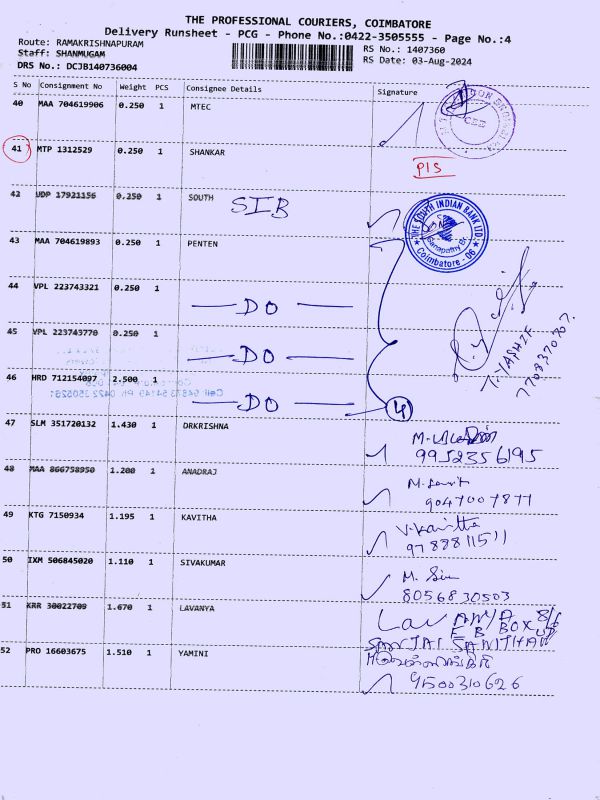 THE PROFESSIONAL COURIERS, COIMBATORE
Delivery Runsheet - PCG - Phone No.:0422-3505555 - Page No.:4
Route: RAMAKRISHNAPURAM
Staff: SHANMUGAM
DRS No.: DCJB140736004
RS No.: 1407360
RS Date: 03-Aug-2024
S No Consignment No Weight PCS Consignee Details Signature
40 MAA 704619906 0.250 1 MTEC
41 MTP 1312529 0.250 1 SHANKAR PIS
42 UDP 17921156 0.250 1 SOUTH SIB
THE SOUTH INDIAN BANK LTD.
Ganapathy Br.
Coimbatore - 06
43 MAA 704619893 0.250 1 PENTEN
44 VPL 223743321 0.250 1 DO
45 VPL 223743770 0.250 1 DO
46 HRD 712154097 2.500 1 DO 4
T. YASHIF
7708370707.
47 SLM 351720132 1.430 1 DRKRISHNA
9952356195
48 MAA 866758950 1.200 1 ANADRAJ M.
9047007877
49 KTG 7150934 1.195 1 KAVITHA V. Kavitha
9788811511
50 IXM 506845020 1.110 1 SIVAKUMAR M. Siv
8056830503
51 KRR 30022709 1.670 1 LAVANYA
E B BOX
52 PRO 16603675 1.510 1 YAMINI
9500310626